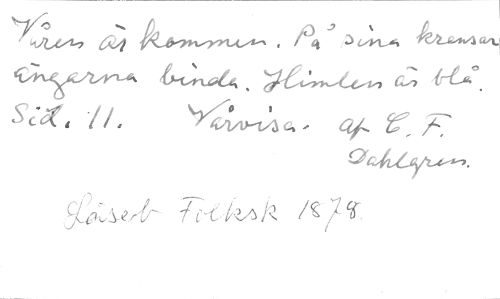 Våren är kommen. På sina kransar
ängarna binda. Himlen är blå.
Sid. 11. Vårvisa. af C. F.
Dahlgren.
Läseb Folksk 1878.